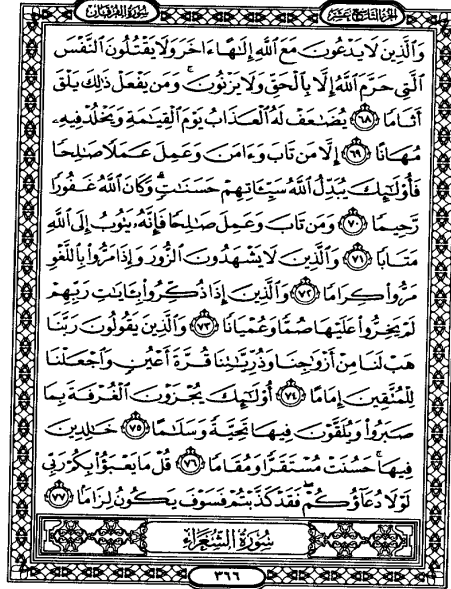 سورة الفرقان
الجزء التاسع عشر
وَالَّذِينَ لَا يَدْعُونَ مَعَ اللَّهِ إِلَٰهًا ءَاخَرَ وَلَا يَقْتُلُونَ النَّفْسَ
الَّتِي حَرَّمَ اللَّهُ إِلَّا بِالْحَقِّ وَلَا يَزْنُونَ ۚ وَمَن يَفْعَلْ ذَٰلِكَ يَلْقَ
أَثَامًا ٦٨ يُضَٰعَفْ لَهُ الْعَذَابُ يَوْمَ الْقِيَٰمَةِ وَيَخْلُدْ فِيهِۦ
مُهَانًا ٦٩ إِلَّا مَن تَابَ وَءَامَنَ وَعَمِلَ عَمَلًا صَٰلِحًا
فَأُو۟لَٰٓئِكَ يُبَدِّلُ اللَّهُ سَيِّـَٔاتِهِمْ حَسَنَٰتٍ ۗ وَكَانَ اللَّهُ غَفُورًا
رَّحِيمًا ٧٠ وَمَن تَابَ وَعَمِلَ صَٰلِحًا فَإِنَّهُۥ يَتُوبُ إِلَى اللَّهِ
مَتَابًا ٧١ وَالَّذِينَ لَا يَشْهَدُونَ الزُّورَ وَإِذَا مَرُّوا۟ بِاللَّغْوِ
مَرُّوا۟ كِرَامًا ٧٢ وَالَّذِينَ إِذَا ذُكِّرُوا۟ بِـَٔايَٰتِ رَبِّهِمْ
لَمْ يَخِرُّوا۟ عَلَيْهَا صُمًّا وَعُمْيَانًا ٧٣ وَالَّذِينَ يَقُولُونَ رَبَّنَا
هَبْ لَنَا مِنْ أَزْوَٰجِنَا وَذُرِّيَّٰتِنَا قُرَّةَ أَعْيُنٍ وَاجْعَلْنَا
لِلْمُتَّقِينَ إِمَامًا ٧٤ أُو۟لَٰٓئِكَ يُجْزَوْنَ الْغُرْفَةَ بِمَا
صَبَرُوا۟ وَيُلَقَّوْنَ فِيهَا تَحِيَّةً وَسَلَٰمًا ٧٥ خَٰلِدِينَ
فِيهَا ۚ حَسُنَتْ مُسْتَقَرًّا وَمُقَامًا ٧٦ قُلْ مَا يَعْبَؤُا۟ بِكُمْ رَبِّي
لَوْلَا دُعَآؤُكُمْ ۖ فَقَدْ كَذَّبْتُمْ فَسَوْفَ يَكُونُ لِزَامًا ٧٧
سُورَةُ الشُّعَرَاءِ
٣٦٦